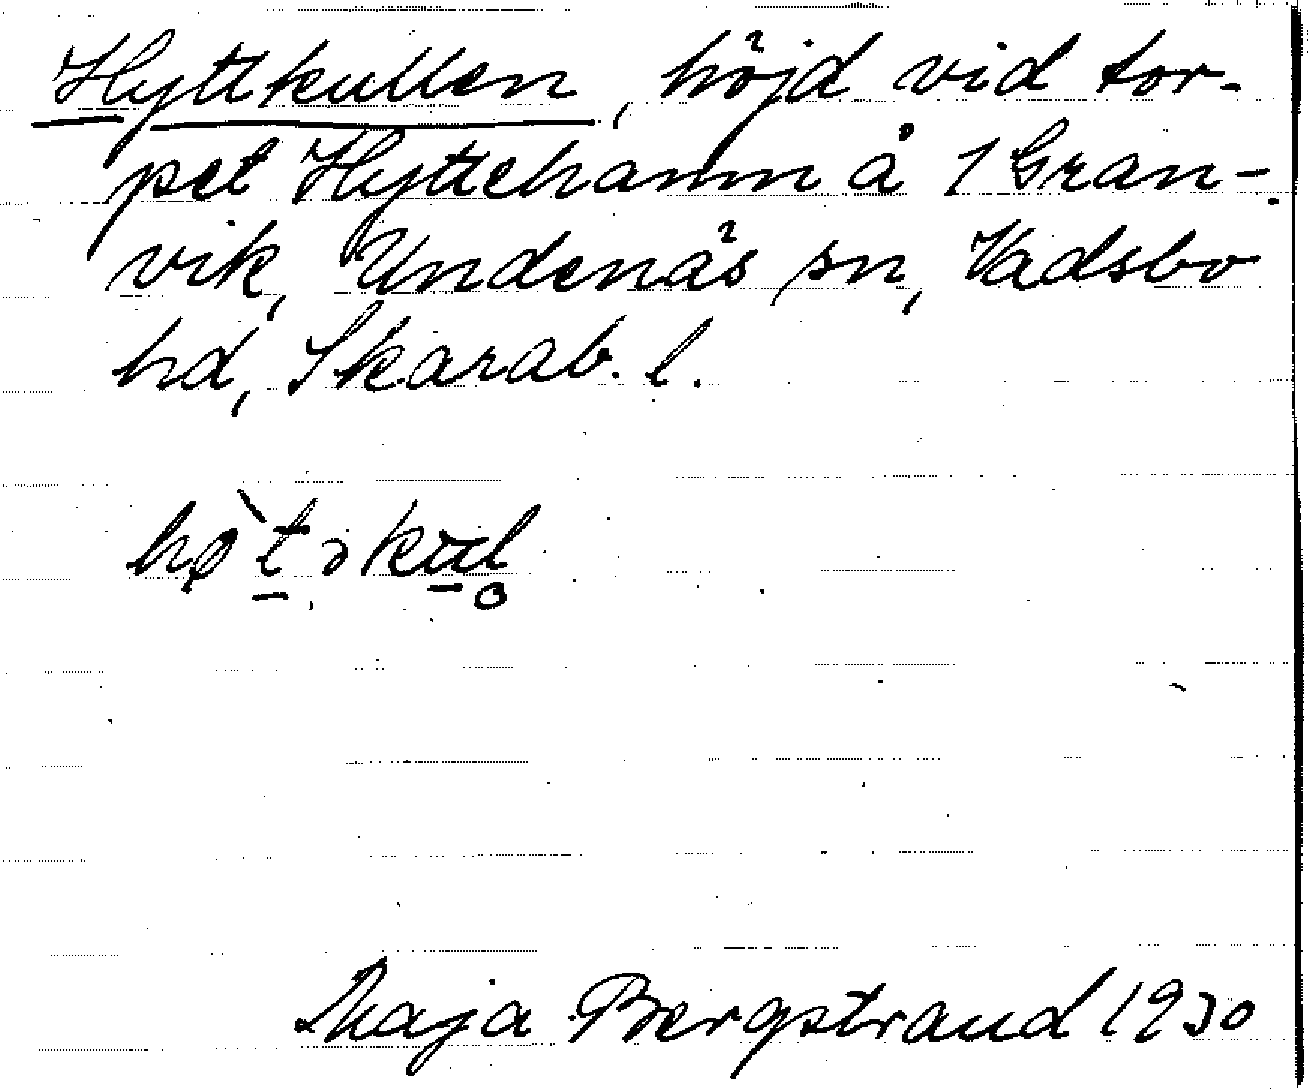 Hyttkullen, höjd vid tor-
pet Hyttehamn å 1 Gran-
vik, Undenäs sn, Vadsbo
hd, Skarab. l.
Maja Bergstrand 1930